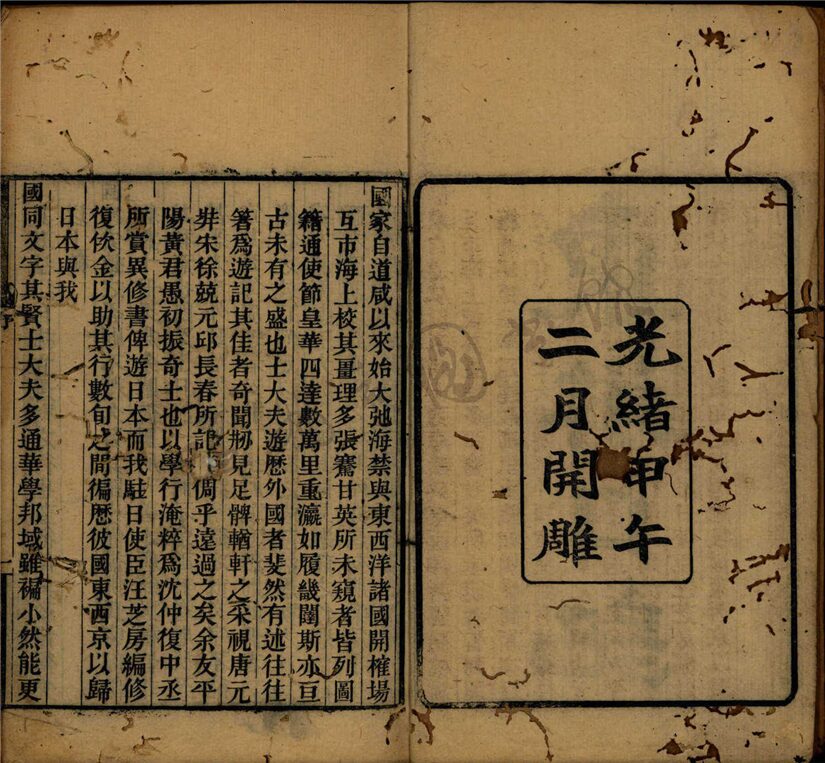 光緒甲午
二月開雕
國家自道咸以來始大弛海禁與東西洋諸國開榷場
互市海上校其畺理多張騫甘英所未窺者皆列圖
籍通使節皇華四達數萬里重瀛如履畿闥斯亦亘
古未有之盛也士大夫遊歷外國者斐然有述往往
箸爲遊記其佳者奇聞剏見足髀輶軒之采視唐元
奘宋徐兢元邱長春所記倜乎遠過之矣余友平
陽黃君愚初振奇士也以學行淹粹爲沈仲復中丞
所賞異修書俾遊日本而我駐日使臣汪芝房編修
復佽金以助其行數旬之間徧歷彼國東西京以歸
日本與我
國同文字其賢士大夫多通華學邦域雖褊小然能更
序